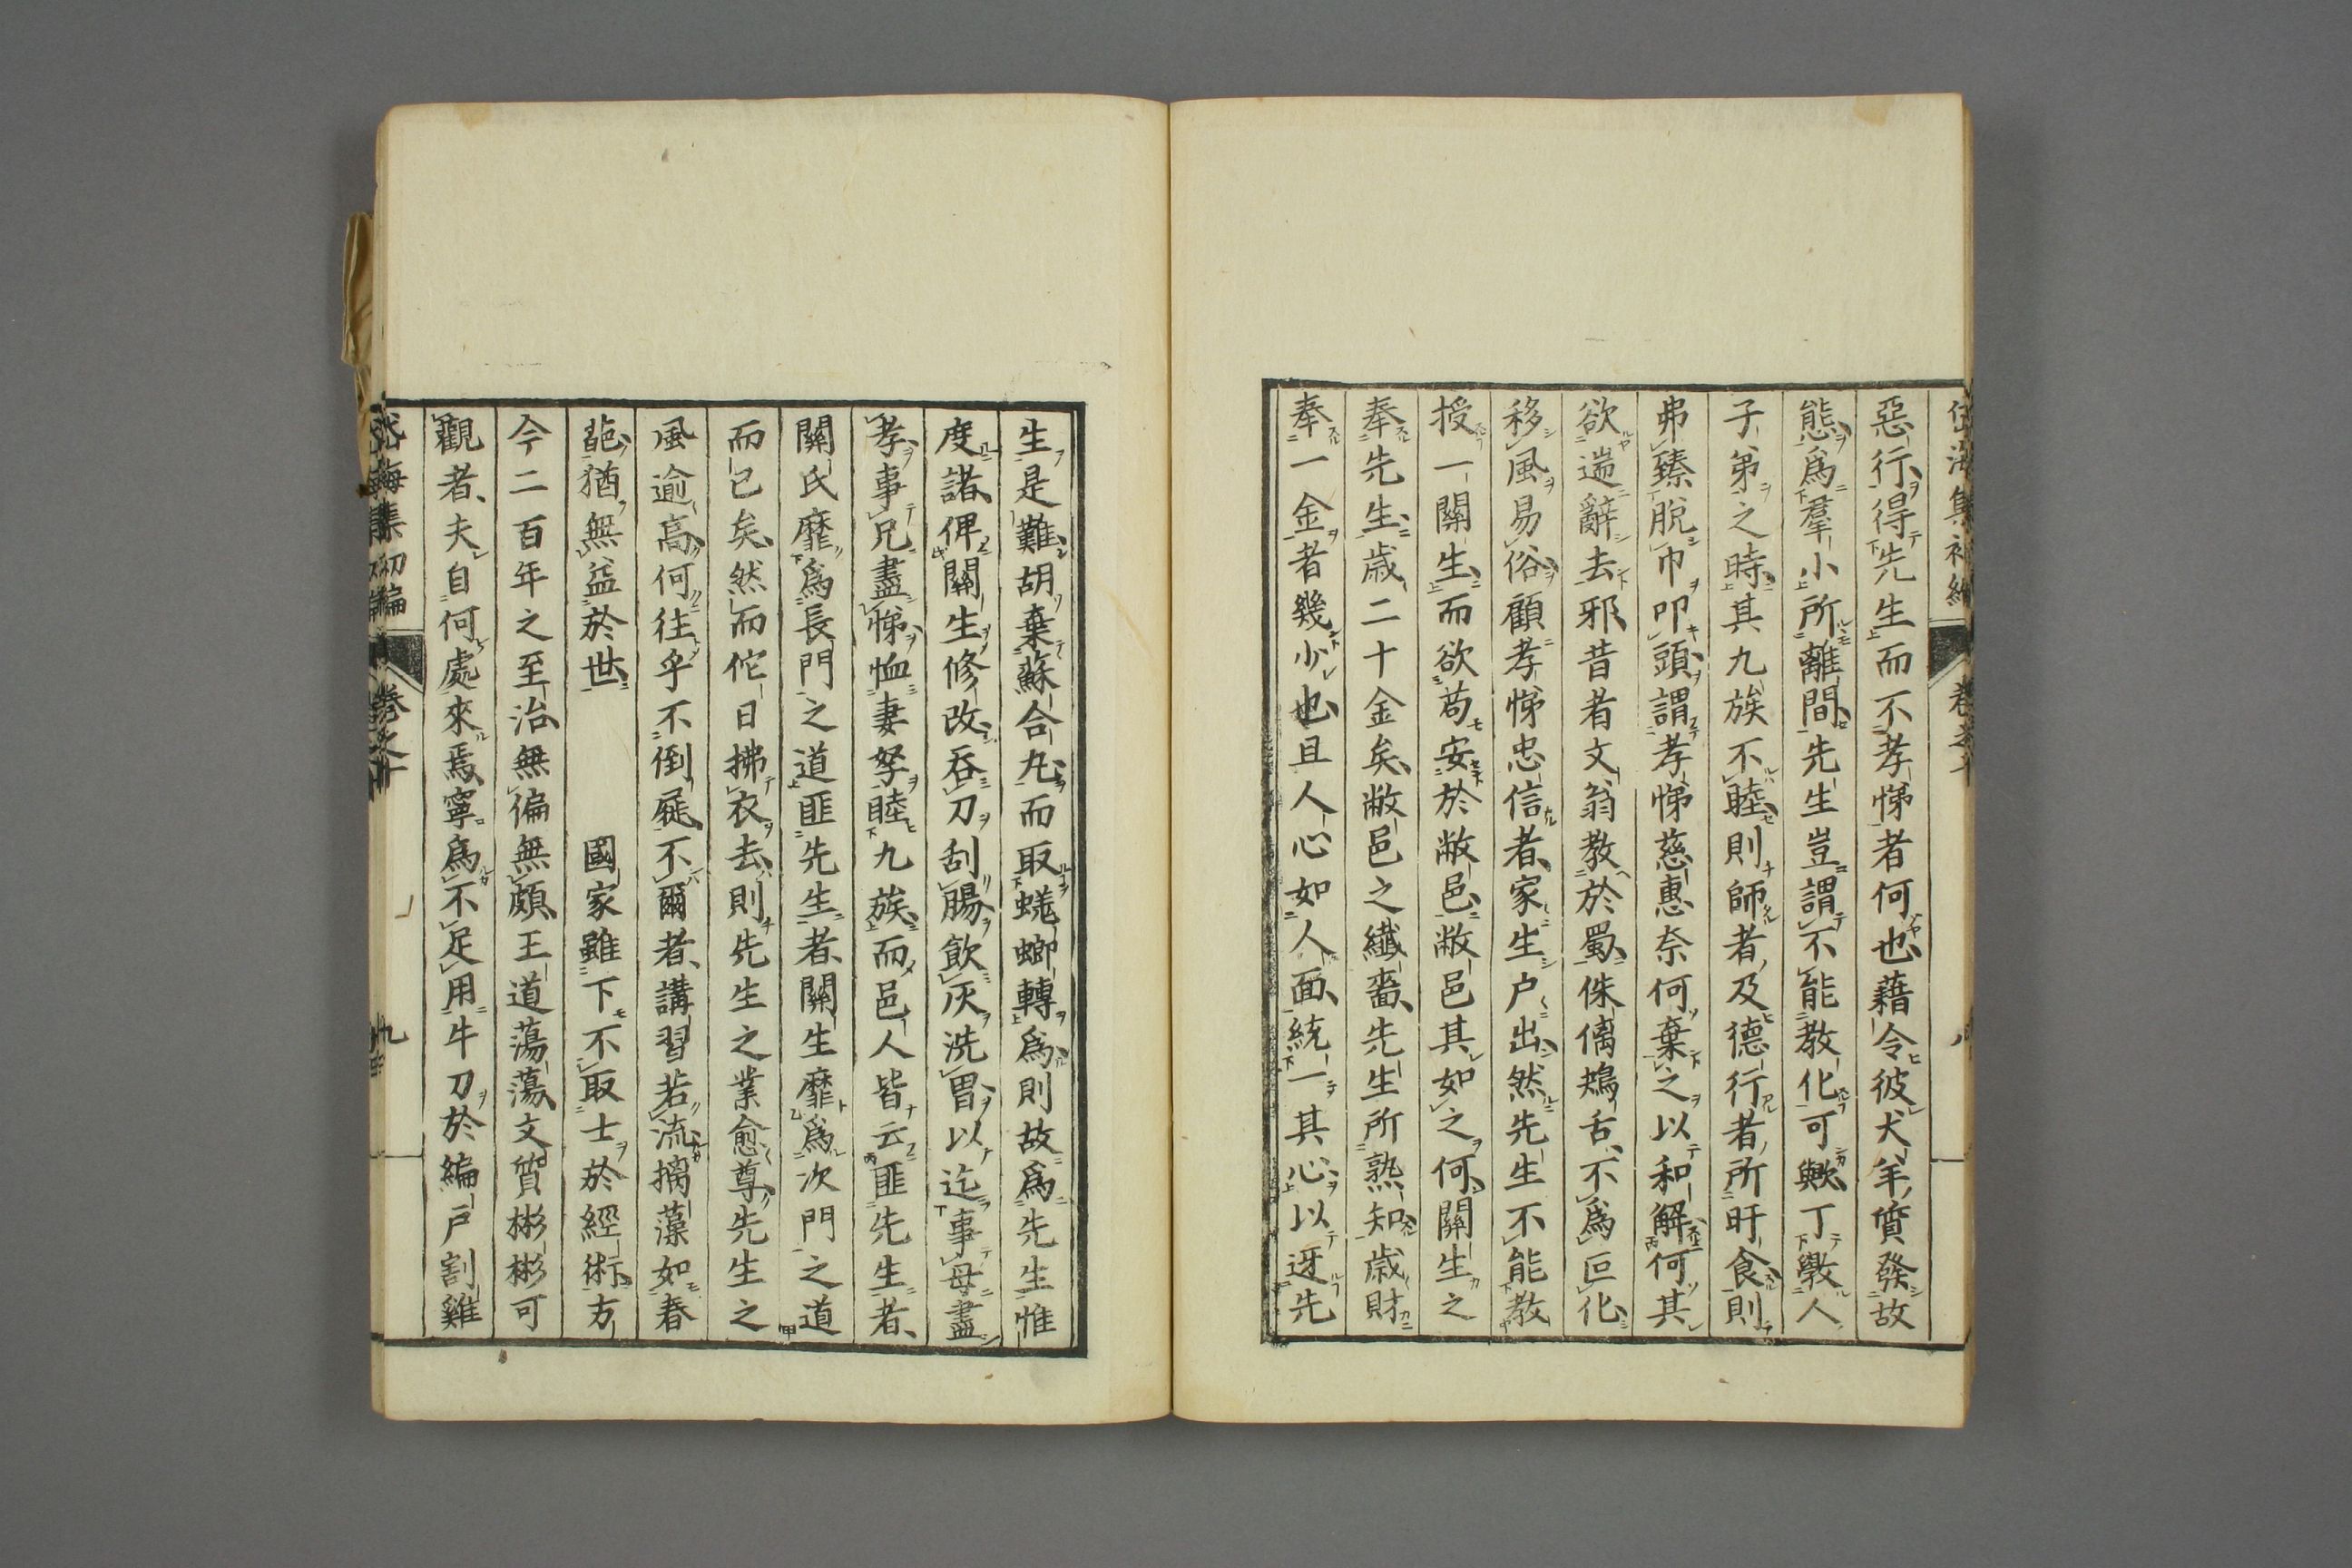 惡行得先生而不孝悌者何也藉令彼犬羊質發故
態爲羣小所離間先生豈謂不能教化可歟丁斅人
子弟之時其九族不睦則師者及德行者所旰食則
弗臻脫巾叩頭謂孝悌慈惠奈何棄之以和解何其
欲遄辭去邪昔者文翁教於蜀侏儷鴂舌不爲叵化
移風易俗顧孝悌忠信者家生户出然先生不能教
授一關生而欲苟安於敝邑敝邑其如之何關生之
奉先生歲二十金矣敝邑之纎嗇先生所熟知歲財
奉一金者幾少也且人心如人面統一其心以迓先
生是難胡棄蘇合丸而取蜣蜋轉爲則故爲先生惟
度諸俾關生修改吞刀刮腸飲灰洗胃以迄事母盡
孝事兄盡悌恤妻孥睦九族而邑人皆云匪先生者
關氏靡爲長門之道匪先生者關生靡爲次門之道
而已矣然而佗日拂衣去則先生之業愈尊先生之
風逾高何往乎不倒屣不爾者講習若流摛藻如春
葩猶無益於世　國家雖下不取士於經術方
今二百年之至治無偏無頗王道蕩蕩文質彬彬可
觀者夫自何處來焉寧爲不足用牛刀於編戸割雞